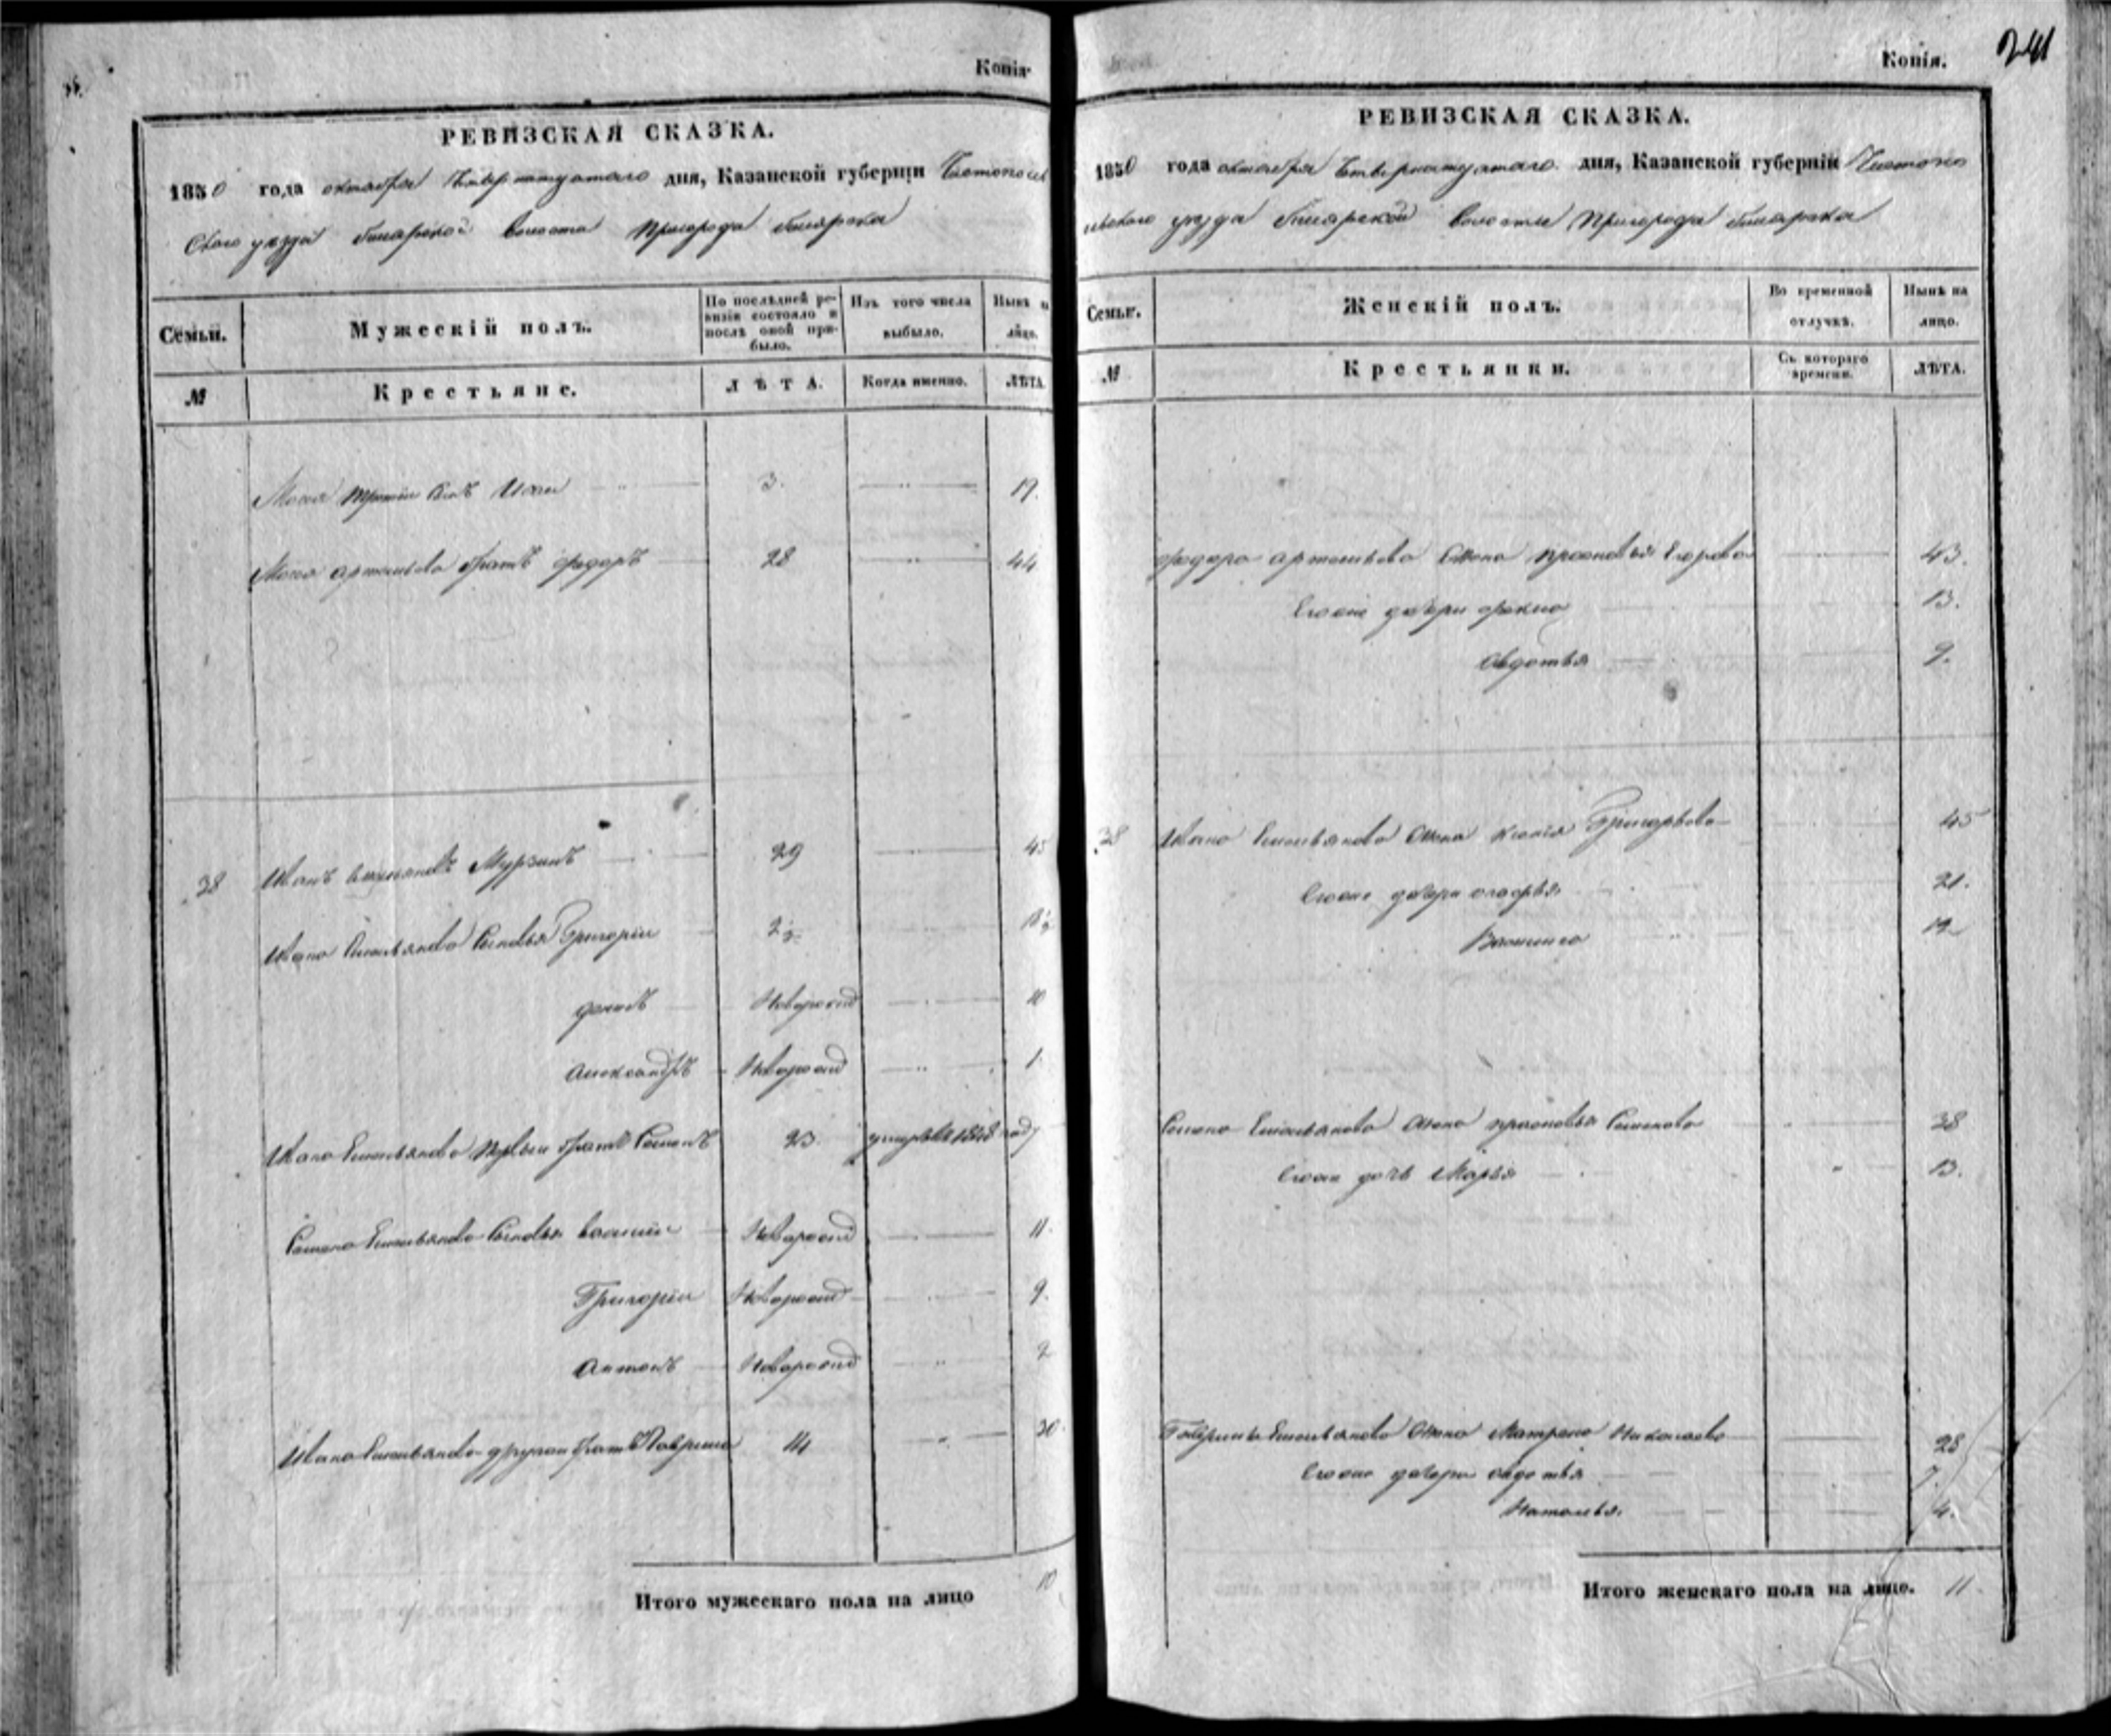 Копія
РЕВИЗСКАЯ СКАЗКА.
1850 года октября дня, Казанской губерніи Чистополь
скаго уезда билярской волости Пригорода билярска
Семьи. Мужескій полъ. По послѣдней ре-
визіи состояло и
послѣ оной при-
было. Изъ того числа
выбыло. Нынѣ н
лицо.
№ Крестьяне. ЛѢТА. Когда именно. ЛѢТА.
3. 19.
братъ федоръ 28 44
38 Иванъ Мурзинъ 29 45
Ивана Емельянова Сыновья Григорій 2½ 18½
Новорожд 10
Александръ Новорожд 1
Ивана Емельянова первый братъ Семенъ 23 умеръ въ 1848 году
Семена Емельянова Сыновья Новорожд 11.
Григорій Новорожд 9.
Антонъ Новорожд 2
Ивана Емельянова другой братъ Гаврила 14 30.
Итого мужескаго пола на лицо 10
Копія.
241
РЕВИЗСКАЯ СКАЗКА.
1850 года октября дня, Казанской губерніи Чистопо
льскаго уезда билярской волости Пригорода билярска
Семьи. Женскій полъ. Во временной
отлучкѣ. Нынѣ на
лицо.
№ Крестьянки. Съ котораго
времени. ЛѢТА.
федора жена прасковья Егорова 43.
Его дочери 13.
Авдотья 9.
38 Ивана Емельянова жена Григорьева 45
Его дочери 21.
Василиса 12
Семена Емельянова жена прасковья Семенова 38
дочь Марья 13.
Гаврилы Емельянова жена Матрена Николаева 28
дочери авдотья 7.
Наталья 4.
Итого женскаго пола на лицо. 11.